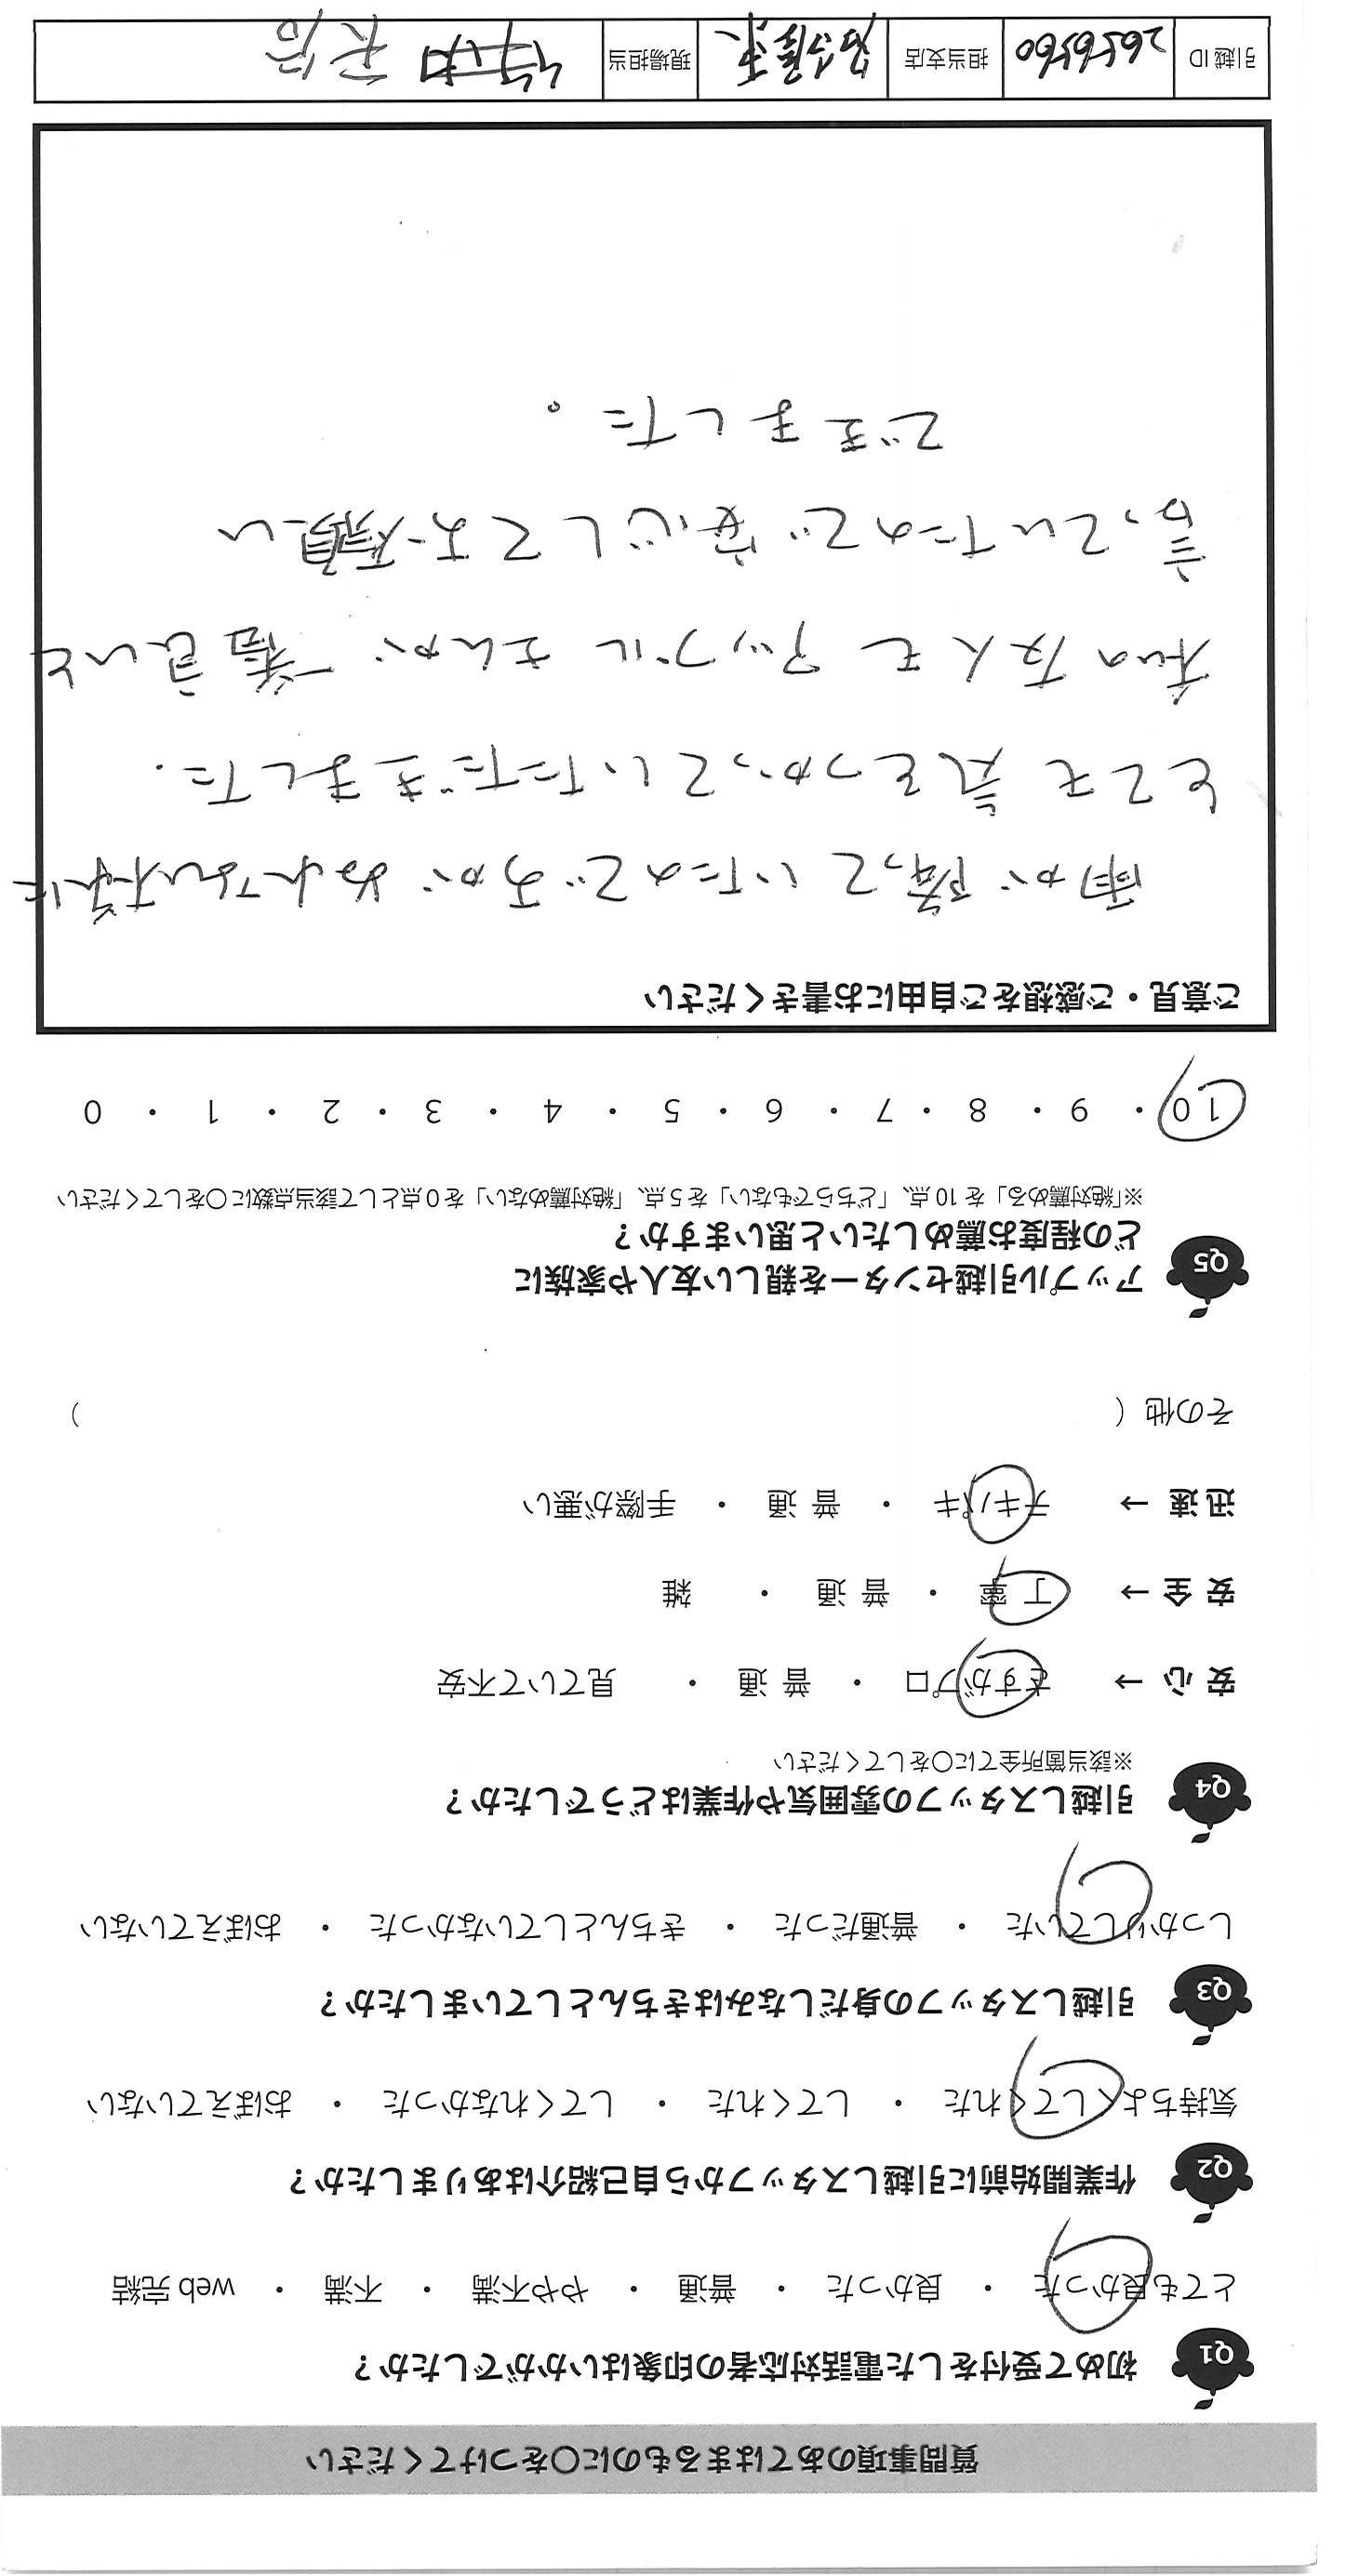 質問事項のあてはまるものに〇をつけてください
Q1 初めて受付をした電話対応者の印象はいかがでしたか？
とても良かった ・ 良かった ・ 普通 ・ やや不満 ・ 不満 ・ web 完結
Q2 作業開始前に引越しスタッフから自己紹介はありましたか？
気持ちよくしてくれた ・ してくれた ・ してくれなかった ・ おぼえていない
Q3 引越しスタッフの身だしなみはきちんとしていましたか？
しっかりしていた ・ 普通だった ・ きちんとしていなかった ・ おぼえていない
Q4 引越しスタッフの雰囲気や作業はどうでしたか？
※該当箇所全てに〇をしてください
安 心 → さすがプロ ・ 普 通 ・ 見ていて不安
安 全 → 丁 寧 ・ 普 通 ・ 雑
迅 速 → テキパキ ・ 普 通 ・ 手際が悪い
その他 （ ）
Q5 アップル引越センターを親しい友人や家族に
どの程度お薦めしたいと思いますか？
※「絶対薦める」を 10 点、「どちらでもない」を 5 点、「絶対薦めない」を 0 点として該当点数に〇をしてください
10 ・ 9 ・ 8 ・ 7 ・ 6 ・ 5 ・ 4 ・ 3 ・ 2 ・ 1 ・ 0
ご意見・ご感想をご自由にお書きください
雨が降っていたので すが ぬれない様に
とても気をつかっていただきました.
私の友人も アップル さんが 一番良いと
言っていたので 安心してお願い
できました。
引越 ID 2656560 担当支店 現場担当